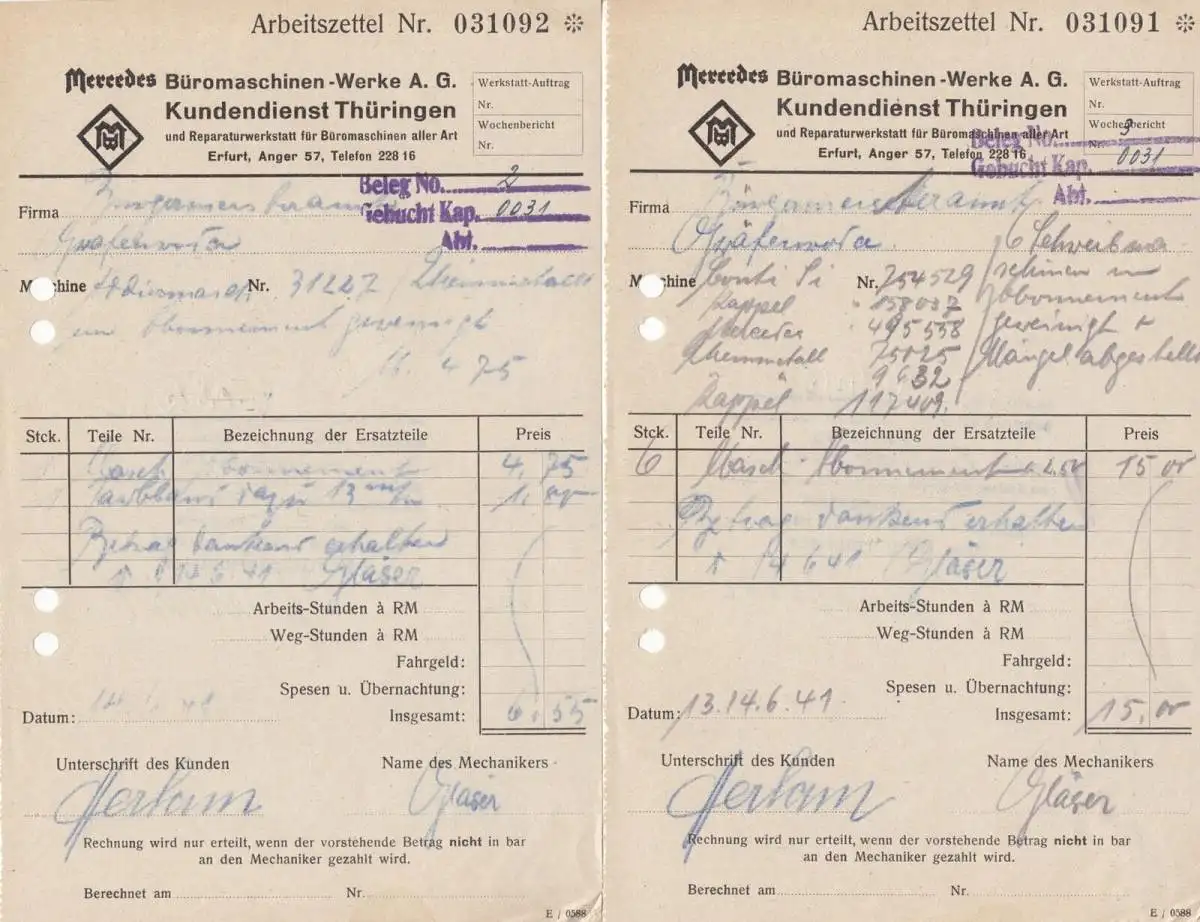 Arbeitszettel Nr. 031092 ✻
Mercedes Büromaschinen-Werke A. G.
Kundendienst Thüringen
und Reparaturwerkstatt für Büromaschinen aller Art
Erfurt, Anger 57, Telefon 228 16
Werkstatt-Auftrag
Nr.
Wochenbericht
Nr.
Beleg No. 2
Gebucht Kap. 0031
Abt.
Firma Bürgermeisteramt
Gräfenroda
Maschine Nr. 31227 Rheinmetall
im Abonnement gereinigt
M. 4 75
Stck. Teile Nr. Bezeichnung der Ersatzteile Preis
Masch Abonnement 4,75
Farbband dazu 13 mm 1,
Betrag dankend erhalten
14 6 41 Gläser
Arbeits-Stunden à RM
Weg-Stunden à RM
Fahrgeld:
Spesen u. Übernachtung:
Datum: 14.6.41 Insgesamt: 6.55
Unterschrift des Kunden Name des Mechanikers
Gläser
Rechnung wird nur erteilt, wenn der vorstehende Betrag nicht in bar
an den Mechaniker gezahlt wird.
Berechnet am Nr.
E / 0588
Arbeitszettel Nr. 031091 ✻
Mercedes Büromaschinen-Werke A. G.
Kundendienst Thüringen
und Reparaturwerkstatt für Büromaschinen aller Art
Erfurt, Anger 57, Telefon 228 16
Werkstatt-Auftrag
Nr.
Wochenbericht
Nr.
Beleg No. 3
Gebucht Kap. 0031
Abt.
Firma Bürgermeisteramt
Gräfenroda 6 Schreibma
Maschine Conti Si Nr. 754529 schinen im
Kappel 158037 Abonnement
Mercedes 495558 gereinigt +
Rheinmetall 75025 Mängel abgestellt
9632
Kappel 117409
Stck. Teile Nr. Bezeichnung der Ersatzteile Preis
6 Masch. Abonnement à 2,50 15 00
Betrag dankend erhalten
14 6 41 Gläser
Arbeits-Stunden à RM
Weg-Stunden à RM
Fahrgeld:
Spesen u. Übernachtung:
Datum: 13.14.6.41 Insgesamt: 15,00
Unterschrift des Kunden Name des Mechanikers
Gläser
Rechnung wird nur erteilt, wenn der vorstehende Betrag nicht in bar
an den Mechaniker gezahlt wird.
Berechnet am Nr.
E / 0588